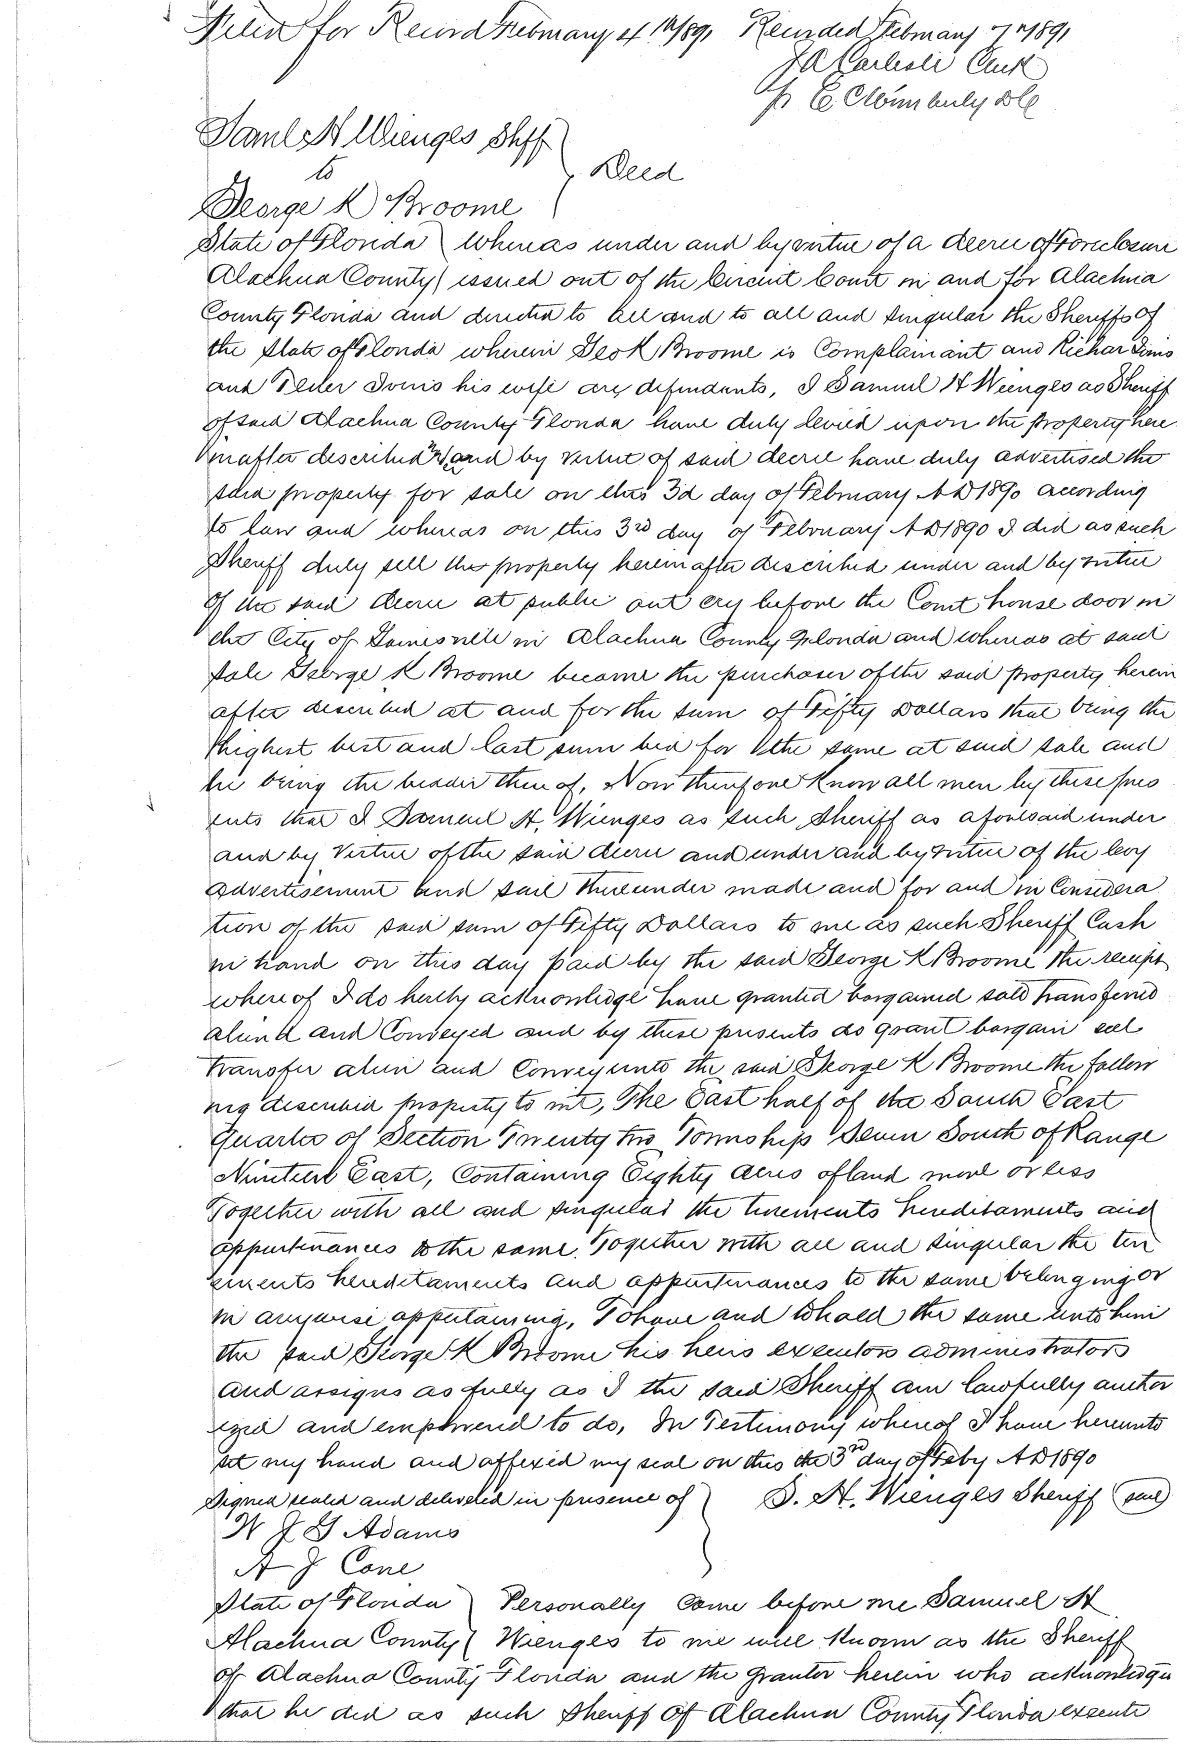 Filed for Record February 4th 1891 Recorded February 7th 1891
J A Carlisle Clerk
pr E C Wimberly DC
Saml H Wienges Shff
to
Deed
George K Broome
State of Florida Whereas under and by virtue of a decree of Foreclosure
Alachua County issued out of the Circuit Court in and for Alachua
County Florida and directed to all and to all and singular the Sheriffs of
the State of Florida wherein Geo K Broome is Complainant and Richar
and his wife are defendants, I Samuel H Wienges as Sheriff
of said Alachua County Florida have duly levied upon the property here
inafter described and by virtue of said decree have duly advertised the
said property for sale on this 3d day of February AD 1890 according
to law and whereas on this 3rd day of February AD 1890 I did as such
Sheriff duly sell the property hereinafter described under and by virtue
of the said decree at public out cry before the Court house door in
the City of Gainesville in Alachua County Florida and whereas at said
sale George K Broome became the purchaser of the said property herein
after described at and for the sum of Fifty Dollars that being the
highest best and last sum bid for the same at said sale and
he being the bidder thereof, Now therefore Know all men by these pres
ents that I Samuel H. Wienges as such Sheriff as aforesaid under
and by Virtue of the said decree and under and by virtue of the levy
advertisement and sail thereunder made and for and in Considera
tion of the said sum of Fifty Dollars to me as such Sheriff Cash
in hand on this day paid by the said George K Broome the receipt
whereof I do hereby acknowledge have granted bargained sold transferred
aliend and Conveyed and by these presents do grant bargain sell
transfer alien and Convey unto the said George K Broome the follow
ing described property to wit, The East half of the South East
quarter of Section Twenty two Township Seven South of Range
Nineteen East, Containing Eighty acres of land more or less
Together with all and singular the tenements hereditaments and
appurtenances to the same. Together with all and singular the ten
ements hereditaments and appurtenances to the same belonging or
in anywise appertaining, To have and to hold the same unto him
the said George K Broome his heirs executors administrators
and assigns as fully as I the said Sheriff am lawfully author
ized and empowered to do, In Testimony whereof I have hereunto
set my hand and affixed my seal on this the 3rd day of Feby AD 1890
Signed sealed and delivered in presence of S. H. Wienges Sheriff (seal)
W J G Adams
A J Cone
State of Florida Personally came before me Samuel H
Alachua County Wienges to me well Known as the Sheriff
of Alachua County Florida and the grantor herein who acknowledges
that he did as such Sheriff of Alachua County Florida execute